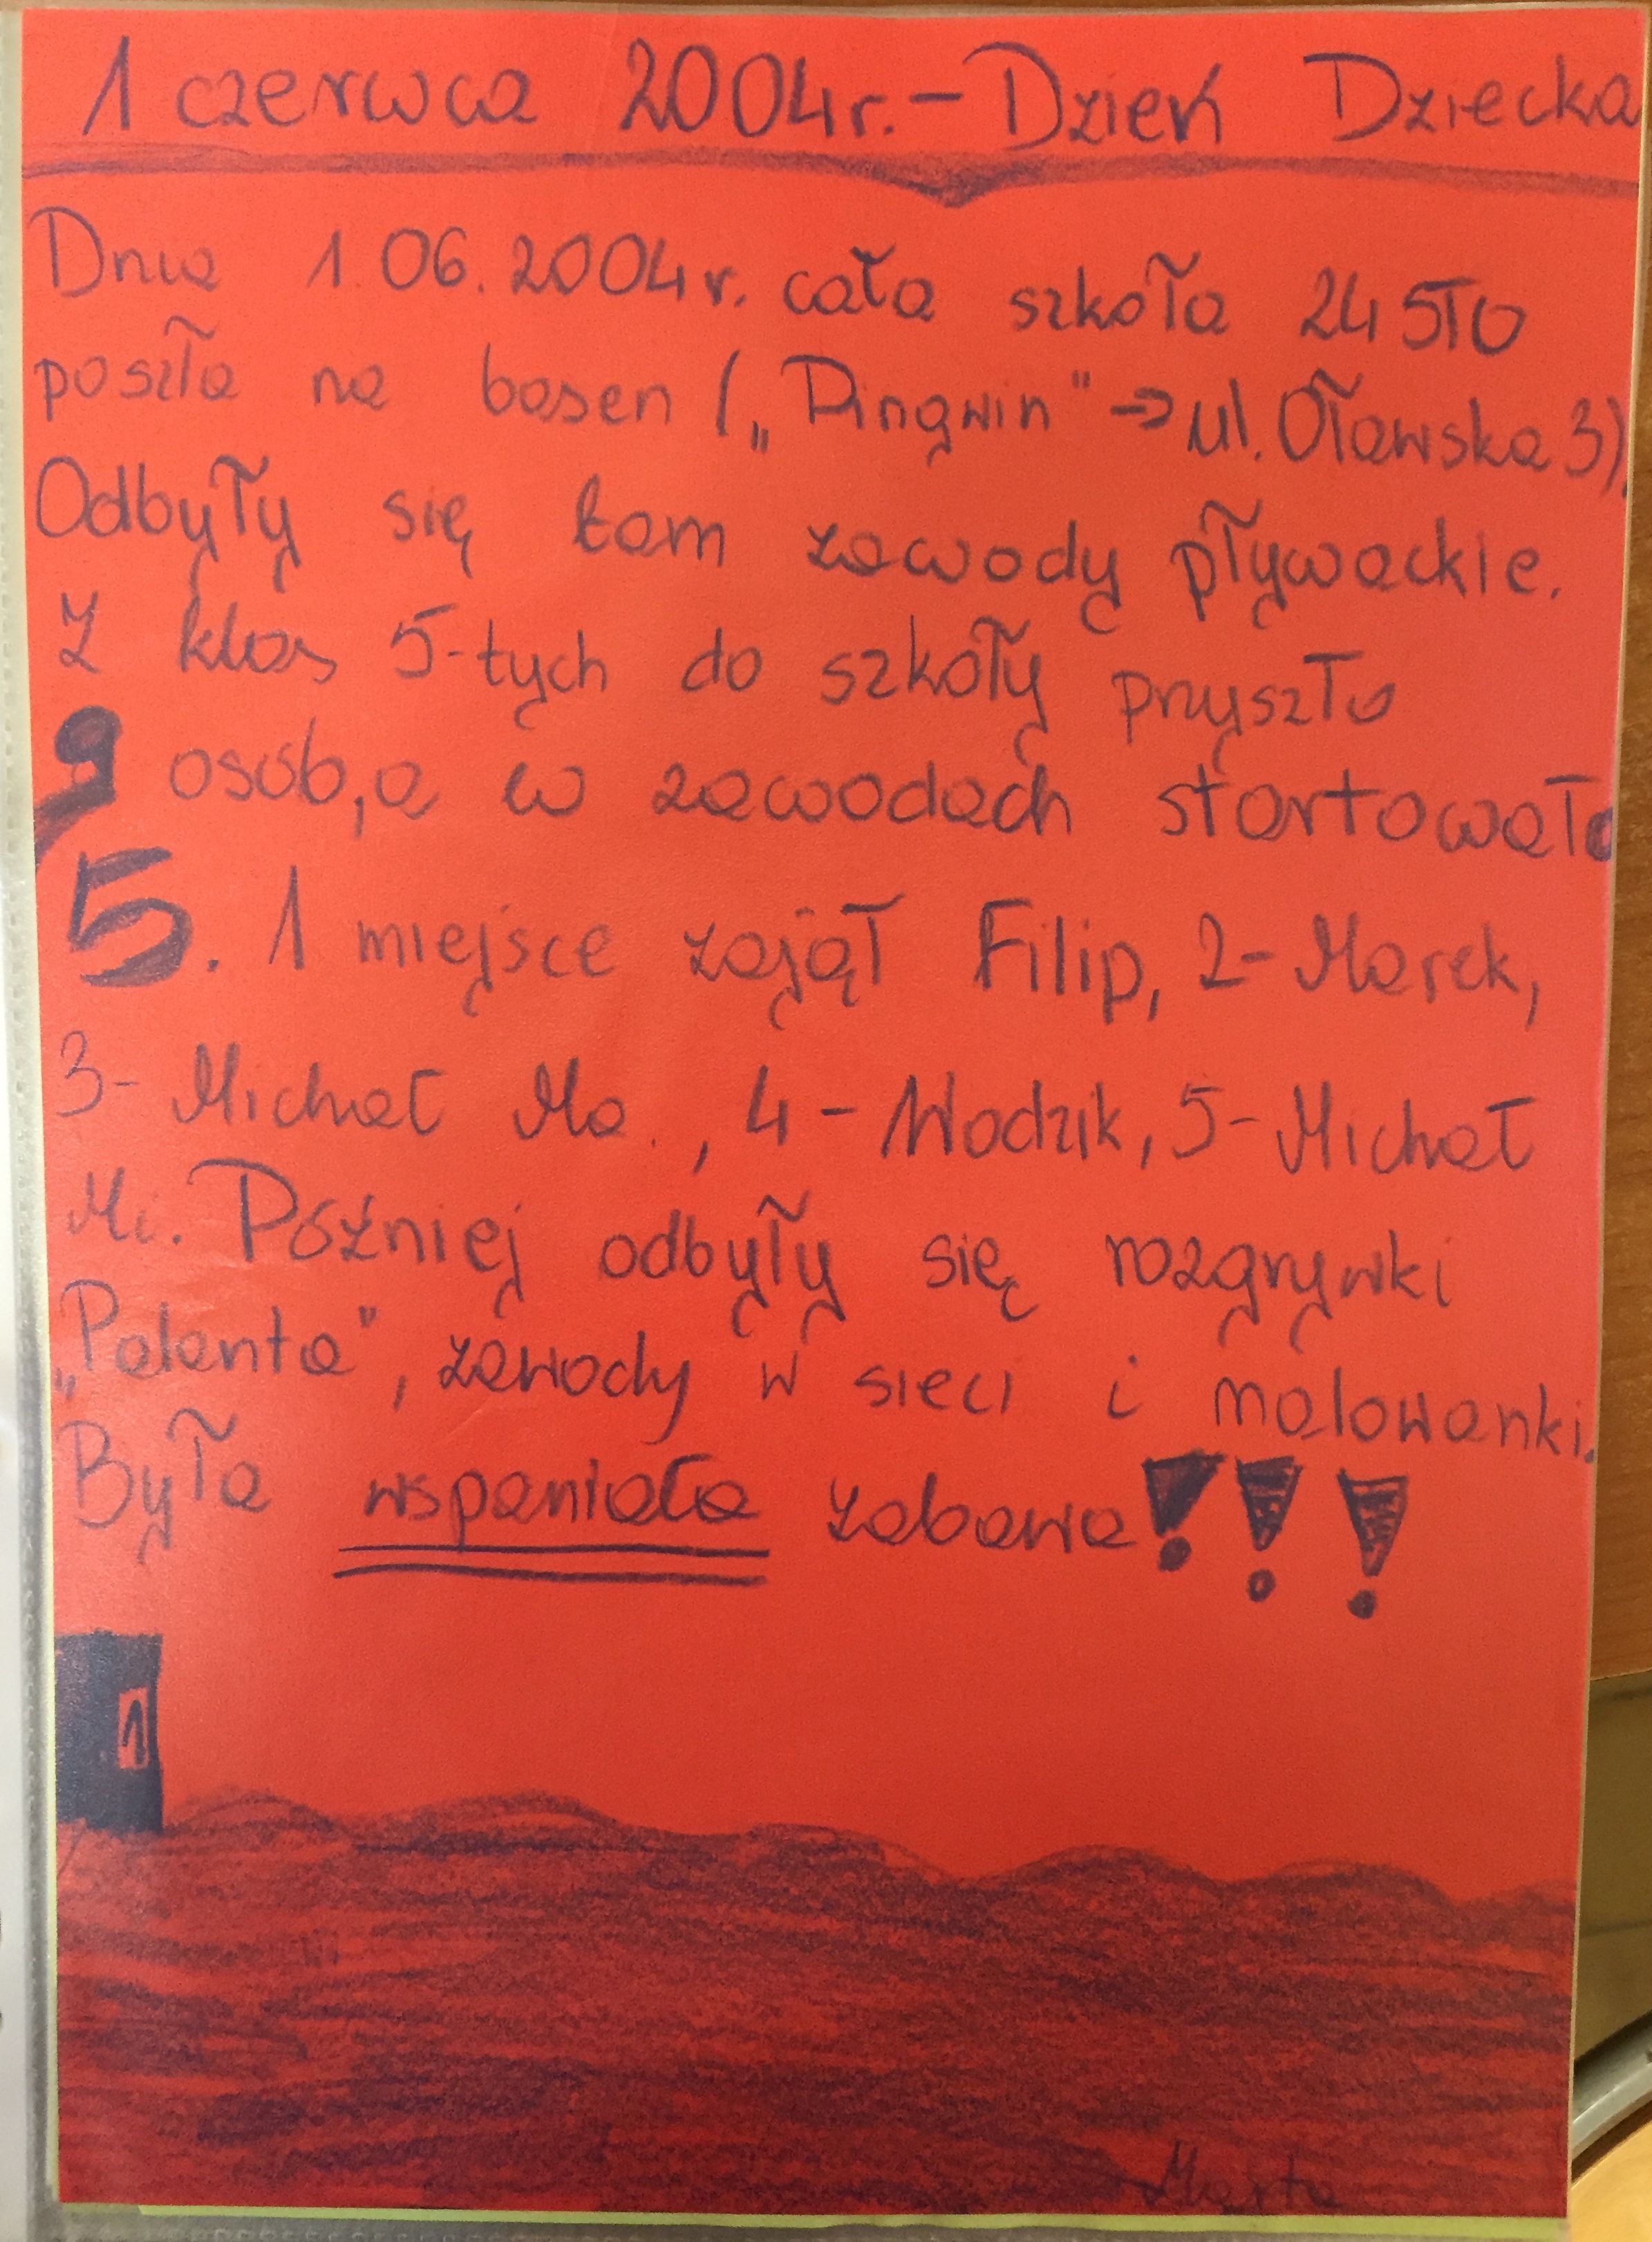 1 czerwca 2004r. - Dzień Dziecka
Dnia 1.06.2004r. cała szkoła 24 STO
poszła na basen („Pingwin" → ul. Oławska 3).
Odbyły się tam zawody pływackie.
Z klas 5-tych do szkoły przyszło
9 osób, a w zawodach startowało
5. 1 miejsce zajął Filip, 2- Marek,
3- Michał Ma., 4 - Wodzik, 5- Michał
Mi. Później odbyły się rozgrywki
„Palanta", zawody w sieci i malowanki.
Była wspaniała zabawa!!!
1
Marta